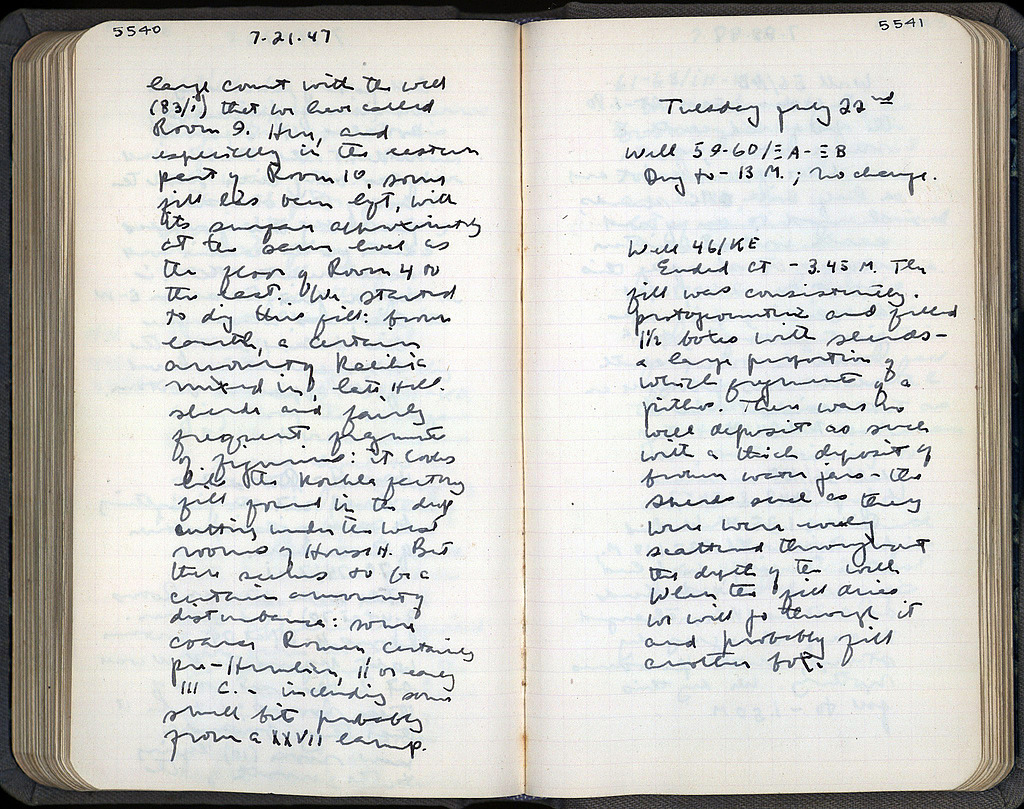 5540
7.21.47
large court with the well
(83/1) that we have called
Room 9. Here, and
especially in the eastern
part of Room 10, some
fill has been left, with
its surface approximately
at the same level as
the floor of Room 4 to
the east. We started
to dig this fill: brown
earth, a certain
amount of
mixed in, late Hell.
sherds and fairly
frequent fragments
of figurines: it looks
like the Koroplast's factory
fill found in the deep
cutting under the west
rooms of House H. But
there seems to be a
certain amount of
disturbance: some
coarse Roman certainly
pre-Herulian, II or early
III C. - including some
small bit probably
from a XXVII lamp.
5541
Tuesday July 22nd
Well 59-60/ΞA-ΞB
Dug to -13 M.; no change.
Well 46/ΚΕ
Ended at -3.45 M. The
fill was consistently
protogeometric and filled
1½ boxes with sherds-
a large proportion of
which fragments of a
pithos. There was no
well deposit as such
with a thick deposit of
broken water jars - the
sherds such as they
were were evenly
scattered throughout
the depth of the well
When the fill dries
we will go through it
and probably fill
another box.